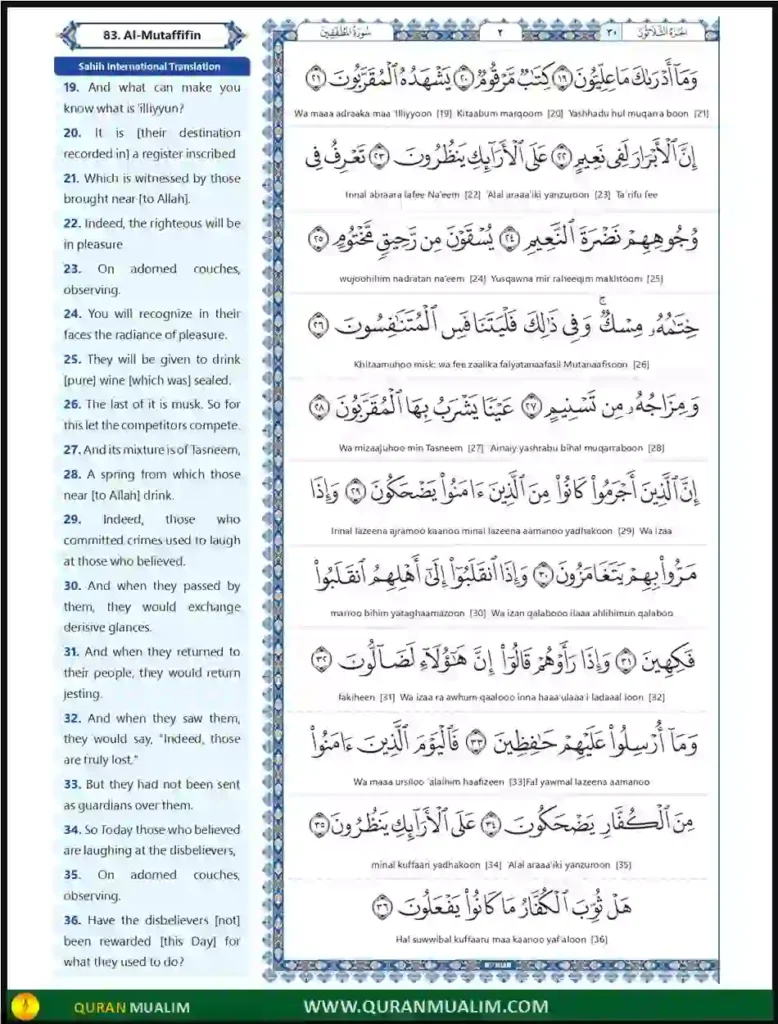 83. Al-Mutaffifin
سُورَةُ المُطَفِّفِين
٢
٣٠
الجُزءُ الثَّلَاثُونَ
Sahih International Translation
19. And what can make you
know what is 'illiyyun?
20. It is [their destination
recorded in] a register inscribed
21. Which is witnessed by those
brought near [to Allah].
22. Indeed, the righteous will be
in pleasure
23. On adorned couches,
observing.
24. You will recognize in their
faces the radiance of pleasure.
25. They will be given to drink
[pure] wine [which was] sealed.
26. The last of it is musk. So for
this let the competitors compete.
27. And its mixture is of Tasneem,
28. A spring from which those
near [to Allah] drink.
29. Indeed, those who
committed crimes used to laugh
at those who believed.
30. And when they passed by
them, they would exchange
derisive glances.
31. And when they returned to
their people, they would return
jesting.
32. And when they saw them,
they would say, "Indeed, those
are truly lost."
33. But they had not been sent
as guardians over them.
34. So Today those who believed
are laughing at the disbelievers,
35. On adorned couches,
observing.
36. Have the disbelievers [not]
been rewarded [this Day] for
what they used to do?
وَمَآ أَدْرَىٰكَ مَا عِلِّيُّونَ ١٩ كِتَٰبٌ مَّرْقُومٌ ٢٠ يَشْهَدُهُ ٱلْمُقَرَّبُونَ ٢١
Wa maaa adraaka maa 'Illiyyoon [19] Kitaabum marqoom [20] Yashhadu hul muqarra boon [21]
إِنَّ ٱلْأَبْرَارَ لَفِى نَعِيمٍ ٢٢ عَلَى ٱلْأَرَآئِكِ يَنظُرُونَ ٢٣ تَعْرِفُ فِى
Innal abraara lafee Na'eem [22] 'Alal araaa'iki yanzuroon [23] Ta'rifu fee
وُجُوهِهِمْ نَضْرَةَ ٱلنَّعِيمِ ٢٤ يُسْقَوْنَ مِن رَّحِيقٍ مَّخْتُومٍ ٢٥
wujoohihim nadratan na'eem [24] Yusqawna mir raheeqim makhtoom [25]
خِتَٰمُهُۥ مِسْكٌ ۚ وَفِى ذَٰلِكَ فَلْيَتَنَافَسِ ٱلْمُتَنَٰفِسُونَ ٢٦
Khitaamuhoo misk; wa fee zaalika falyatanaafasil Mutanaafisoon [26]
وَمِزَاجُهُۥ مِن تَسْنِيمٍ ٢٧ عَيْنًا يَشْرَبُ بِهَا ٱلْمُقَرَّبُونَ ٢٨
Wa mizaajuhoo min Tasneem [27] 'Ainaiy yashrabu bihal muqarraboon [28]
إِنَّ ٱلَّذِينَ أَجْرَمُوا۟ كَانُوا۟ مِنَ ٱلَّذِينَ ءَامَنُوا۟ يَضْحَكُونَ ٢٩ وَإِذَا
Innal lazeena ajramoo kaanoo minal lazeena aamanoo yadhakoon [29] Wa izaa
مَرُّوا۟ بِهِمْ يَتَغَامَزُونَ ٣٠ وَإِذَا ٱنقَلَبُوٓا۟ إِلَىٰٓ أَهْلِهِمُ ٱنقَلَبُوا۟
marroo bihim yataghaamazoon [30] Wa izan qalabooo ilaaa ahlihimun qalaboo
فَكِهِينَ ٣١ وَإِذَا رَأَوْهُمْ قَالُوٓا۟ إِنَّ هَٰٓؤُلَآءِ لَضَآلُّونَ ٣٢
fakiheen [31] Wa izaa ra awhum qaalooo inna haaa'ulaaa'i ladaaal loon [32]
وَمَآ أُرْسِلُوا۟ عَلَيْهِمْ حَٰفِظِينَ ٣٣ فَٱلْيَوْمَ ٱلَّذِينَ ءَامَنُوا۟
Wa maaa ursiloo 'alaihim haafizeen [33]Fal yawmal lazeena aamanoo
مِنَ ٱلْكُفَّارِ يَضْحَكُونَ ٣٤ عَلَى ٱلْأَرَآئِكِ يَنظُرُونَ ٣٥
minal kuffaari yadhakoon [34] 'Alal araaa'iki yanzuroon [35]
هَلْ ثُوِّبَ ٱلْكُفَّارُ مَا كَانُوا۟ يَفْعَلُونَ ٣٦
Hal suwwibal kuffaaru maa kaanoo yaf'aloon [36]
QURAN MUALIM
WWW.QURANMUALIM.COM